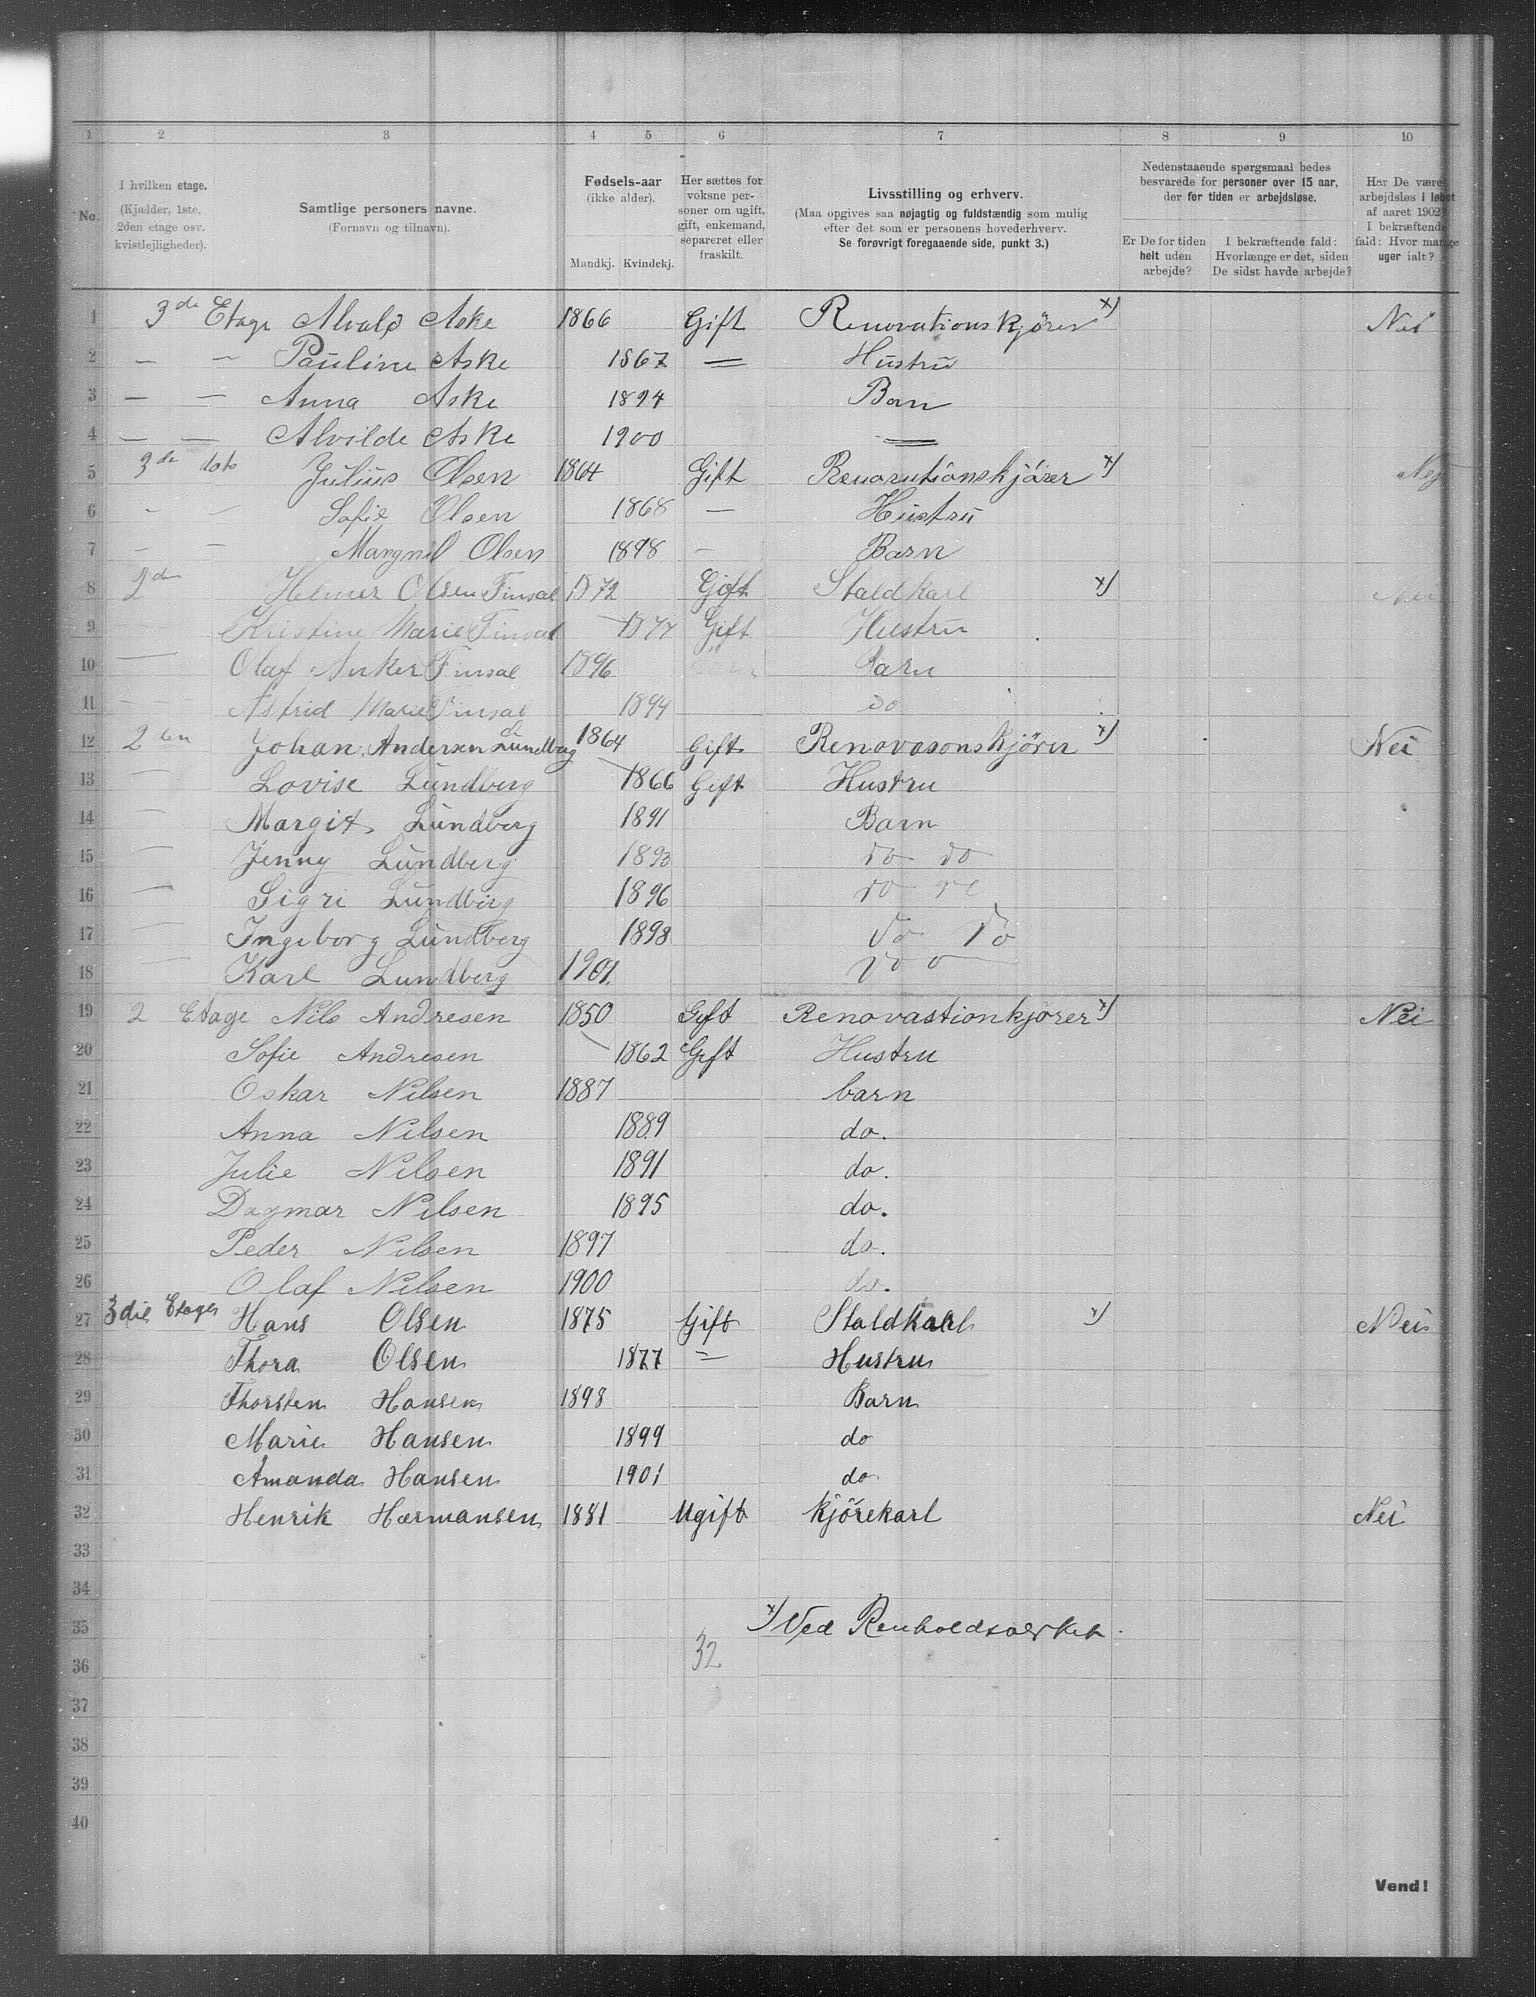 1 2 3 4 5 6 7 8 9 10
No.
I hvilken etage. (Kjælder, 1ste, 2den etage osv. kvistlejligheder).
Samtlige personers navne. (Fornavn og tilnavn).
Fødsels-aar (ikke alder). Mandkj. Kvindekj.
Her sættes for voksne personer om ugift, gift, enkemand, separeret eller fraskilt.
Livsstilling og erhverv. (Maa opgives saa nøjagtig og fuldstændig som mulig efter det som er personens hovederhverv. Se forøvrigt foregaaende side, punkt 3.)
Nedenstaaende spørgsmaal bedes besvarede for personer over 15 aar, der for tiden er arbejdsløse.
Er De for tiden helt uden arbejde?
I bekræftende fald: Hvorlænge er det, siden De sidst havde arbejde?
Har De været arbejdsløs i løbet af aaret 1902? I bekræftende fald: Hvor mange uger ialt?
1 3de Etage Alvald Aske 1866 Gift Renovationskjører x) Nei
2 — — Pauline Aske 1867 — Hustru
3 — — Anna Aske 1894 Barn
4 — — Alvilde Aske 1900 —
5 3de dato Julius Olsen 1864 Gift Renovationskjører x) Nej
6 - - Sofie Olsen 1868 — Hustru
7 - - Olsen 1898 - Barn
8 2den Helmer Olsen Finsal 1872 Gift Staldkarl x) Nei
9 Kristine Marie Finsal 1877 Gift Hustru
10 — Olaf Anker Finsal 1896 Barn
11 Astrid Marie Finsal 1899 do
12 2den Johan Andersen Lundberg 1864 Gift Renovasonskjörer x) Nei
13 — Lovise Lundberg 1866 Gift Hustru
14 — Margit Lundberg 1891 Barn
15 — Jenny Lundberg 1893 do do
16 — Sigri Lundberg 1896 do
17 — Ingeborg Lundberg 1898 do do
18 — Karl Lundberg 1901. do
19 2 Etage Nils Andresen 1850 Gift Renovastionkjorer x) Nei
20 Sofie Andresen 1862 Gift Hustru
21 Oskar Nilsen 1887 barn
22 Anna Nilsen 1889 do.
23 Julie Nilsen 1891 do.
24 Dagmar Nilsen 1895 do.
25 Peder Nilsen 1897 do.
26 Olaf Nilsen 1900 do.
27 3die Etage Hans Olsen 1875 Gift Staldkarl x) Nei
28 Thora Olsen 1877 — Hustru
29 Thorsten Hansen 1898 Barn
30 Marie Hansen 1899 do
31 Amanda Hansen 1901 do
32 Henrik Hærmansen 1881 Ugift kjörekarl Nei
33
34
35 x) Ved Renholdsverket.
36 32
37
38
39
40
Vend!